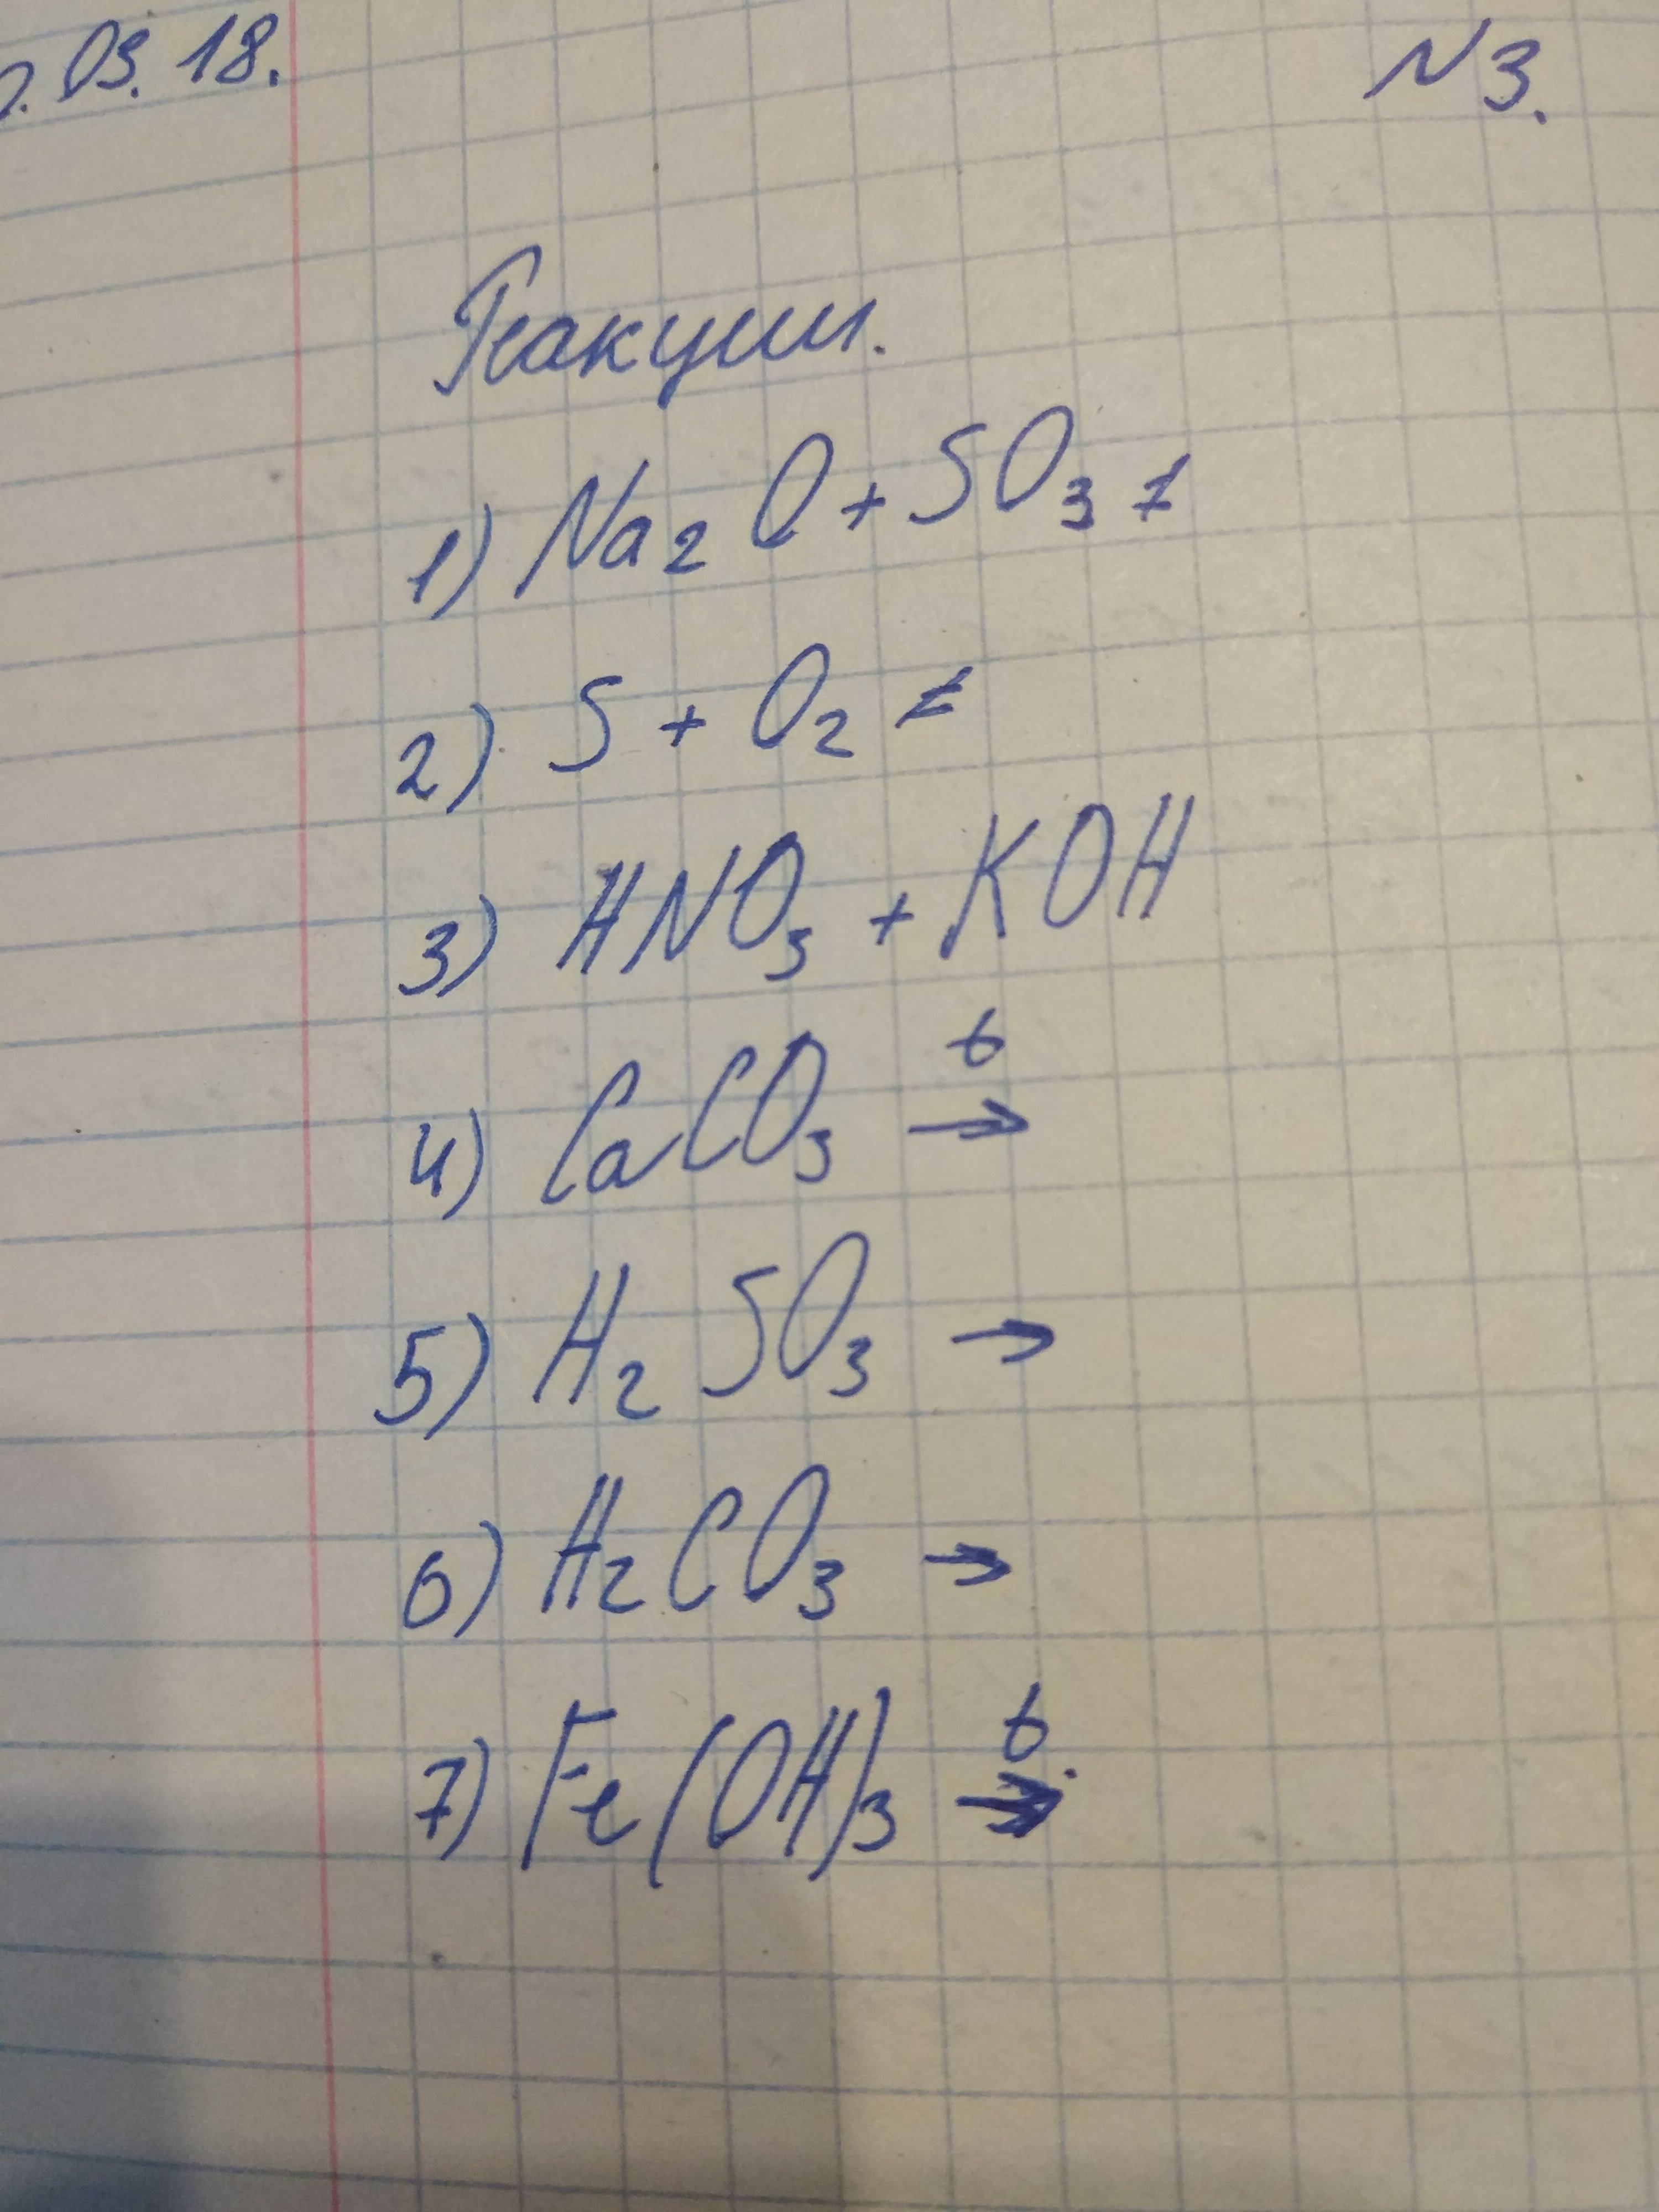 .03.18.
N3.
Реакции.
1) Na₂O + SO₃ =
2) S + O₂ =
3) HNO₃ + KOH
t
4) CaCO₃ →
5) H₂SO₃ →
6) H₂CO₃ →
t
7) Fe(OH)₃ →